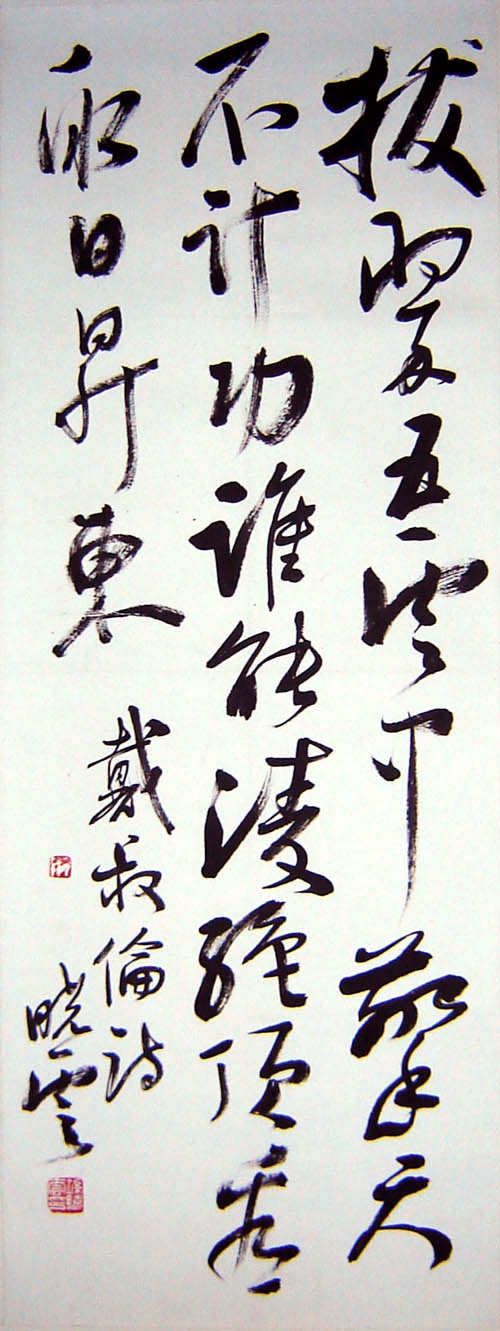 拔翠五雲中擎天
不計功誰能淩絕頂看
取日昇東
戴叔倫詩
曉雲